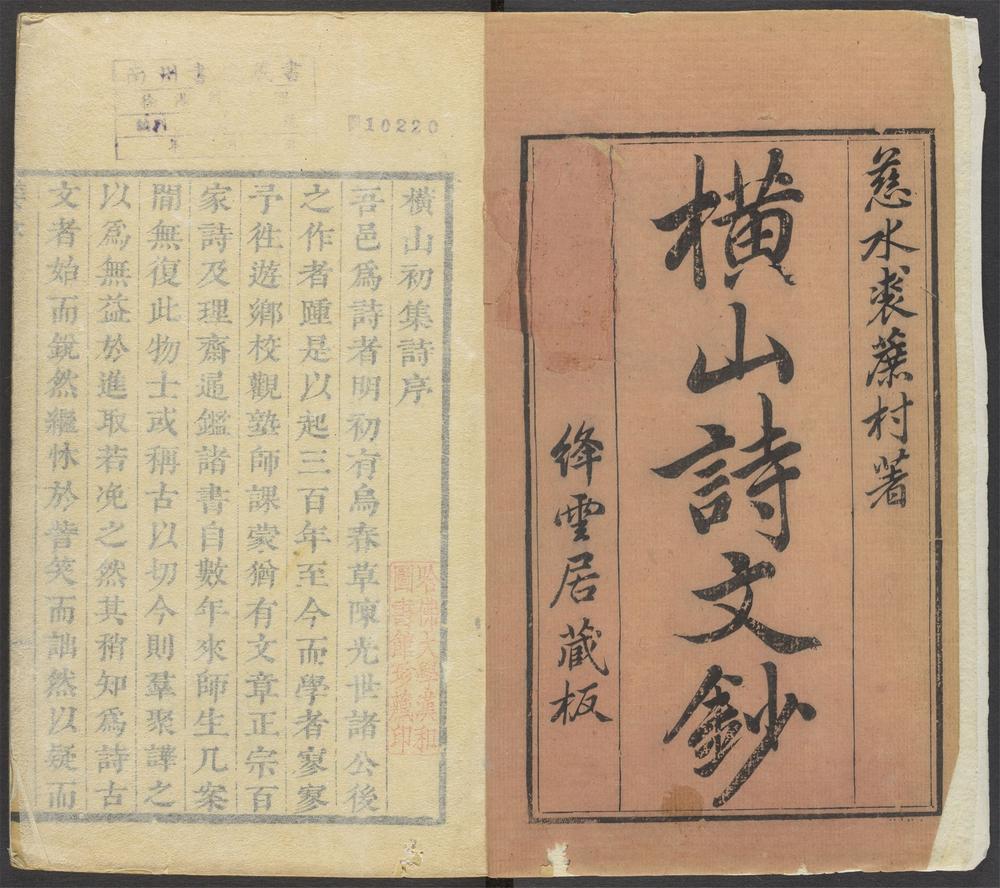 慈水裘蔗村著
橫山詩文鈔
絳雲居藏板
10220
橫山初集詩序
吾邑爲詩者明初有烏春草陳光世諸公後
之作者踵是以起三百年至今而學者寥寥
予徃遊鄉校觀塾師課蒙猶有文章正宗百
家詩及理齋通鑑諸書自數年來師生几案
閒無復此物士或稱古以切今則羣聚譁之
以爲無益於進取若凂之然其稍知爲詩古
文者始而銳然繼怵於訾笑而詘然以疑而
哈佛大學漢和
圖書館珍藏印